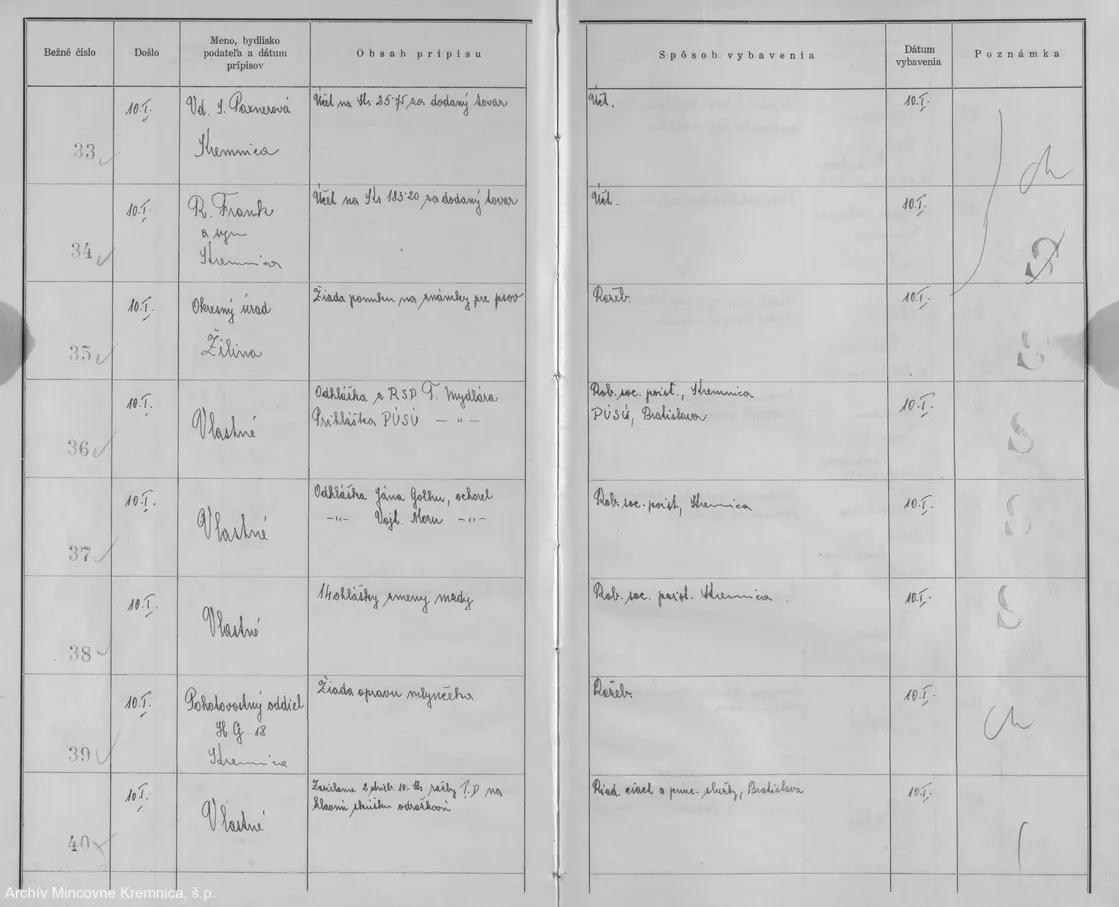 Bežné číslo
Došlo
Meno, bydlisko
podateľa a dátum
prípisov
Obsah prípisu
Spôsob vybavenia
Dátum
vybavenia
Poznámka
33
10.I.
Vd. J. Paxnerová
Kremnica
Účt na Ks 25·75 za dodaný tovar
Účt.
10.I.
34
10.I.
R. Frank
a syn
Kremnica
Účet na Ks 183·20 za dodaný tovar
Účt.
10.I.
35
10.I.
Okresný úrad
Žilina
Žiada ponuku na známky pre psov
Rozb.
10.I.
36
10.I.
Vlastné
Odhláška z RSP T. Mydlára
Prihláška PÚSÚ — „ —
Rob. soc. poist., Kremnica
PÚSÚ, Bratislava
10.I.
37
10.I.
Vlastné
Odhláška Jána Golhu, ochorel
—„— Vojt. Moru —„—
Rob. soc. poist, Kremnica
10.I.
38
10.I.
Vlastné
14 ohlášky zmeny mzdy
Rob. soc. poist. Kremnica
10.I.
39
10.I.
Pohotovostný oddiel
HG. 18
Kremnica
Žiada opravu mlynčeka
Rozb.
10.I.
40
10.I.
Vlastné
Zasielame 2 strieb. 10.- Ks razby T.D na
hlavnú skúšku
Riad. ciach a punc. služby, Bratislava
10.I.
Archív Mincovne Kremnica, š.p.